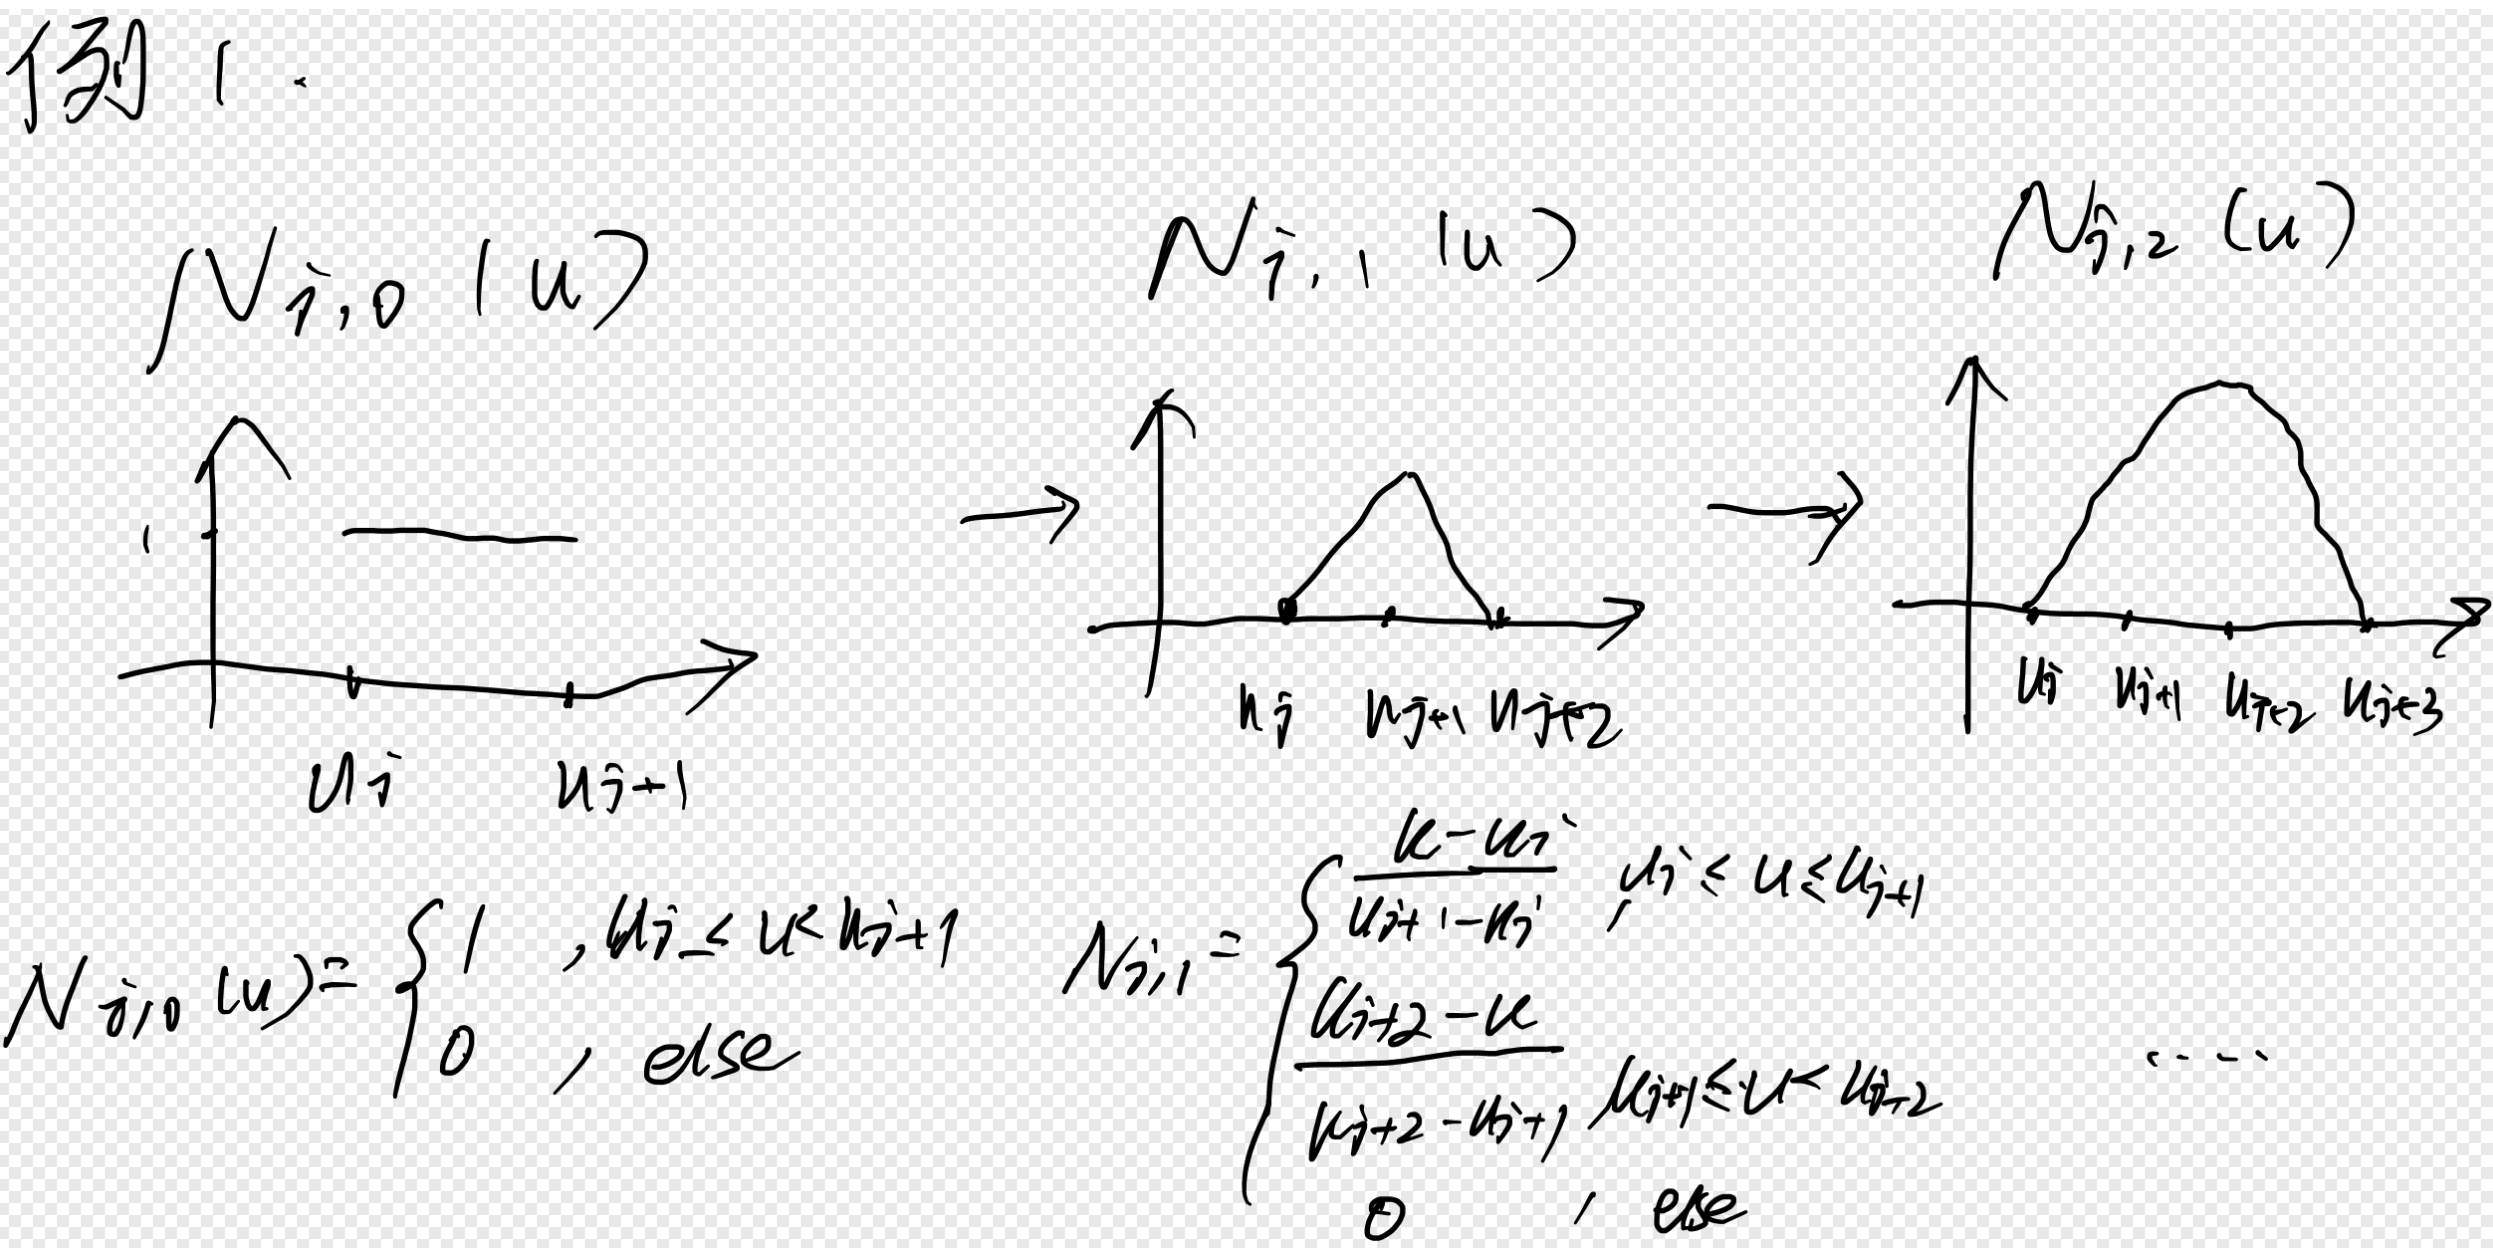 例 1.
N_{j,0}(u)
N_{j,1}(u)
N_{j,2}(u)
1
u_j u_{j+1}
u_j u_{j+1} u_{j+2}
u_j u_{j+1} u_{j+2} u_{j+3}
N_{j,0}(u) = { 1 , u_j ≤ u < u_{j+1}
0 , else
N_{j,1} = { \frac{u - u_j}{u_{j+1} - u_j} , u_j ≤ u ≤ u_{j+1}
\frac{u_{j+2} - u}{u_{j+2} - u_{j+1}} , u_{j+1} ≤ u < u_{j+2}
0 , else
....